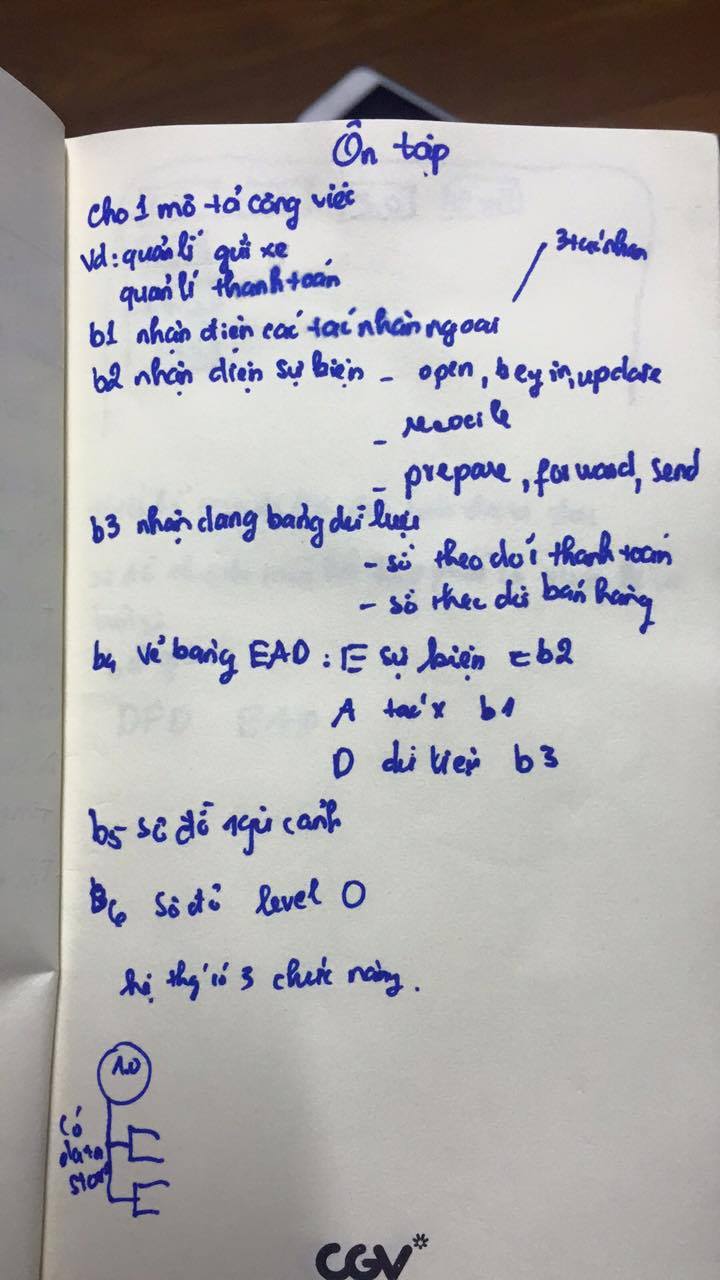 Ôn tập
cho 1 mô tả công việc
vd: quản lí gửi xe
quản lí thanh toán
3 tác nhân
b1 nhận diện các tác nhân ngoài
b2 nhận diện sự kiện - open, key in, update
-
- prepare, forward, send
b3 nhận dạng bảng dữ liệu
- sổ theo dõi thanh toán
- sổ theo dõi bán hàng
b4 vẽ bảng EAD: E sự kiện = b2
A tác x b1
D dữ kiện b3
b5 sơ đồ ngữ cảnh
B6 sơ đồ level 0
hệ có 3 chức năng.
1.0
có
data
store
CGV*